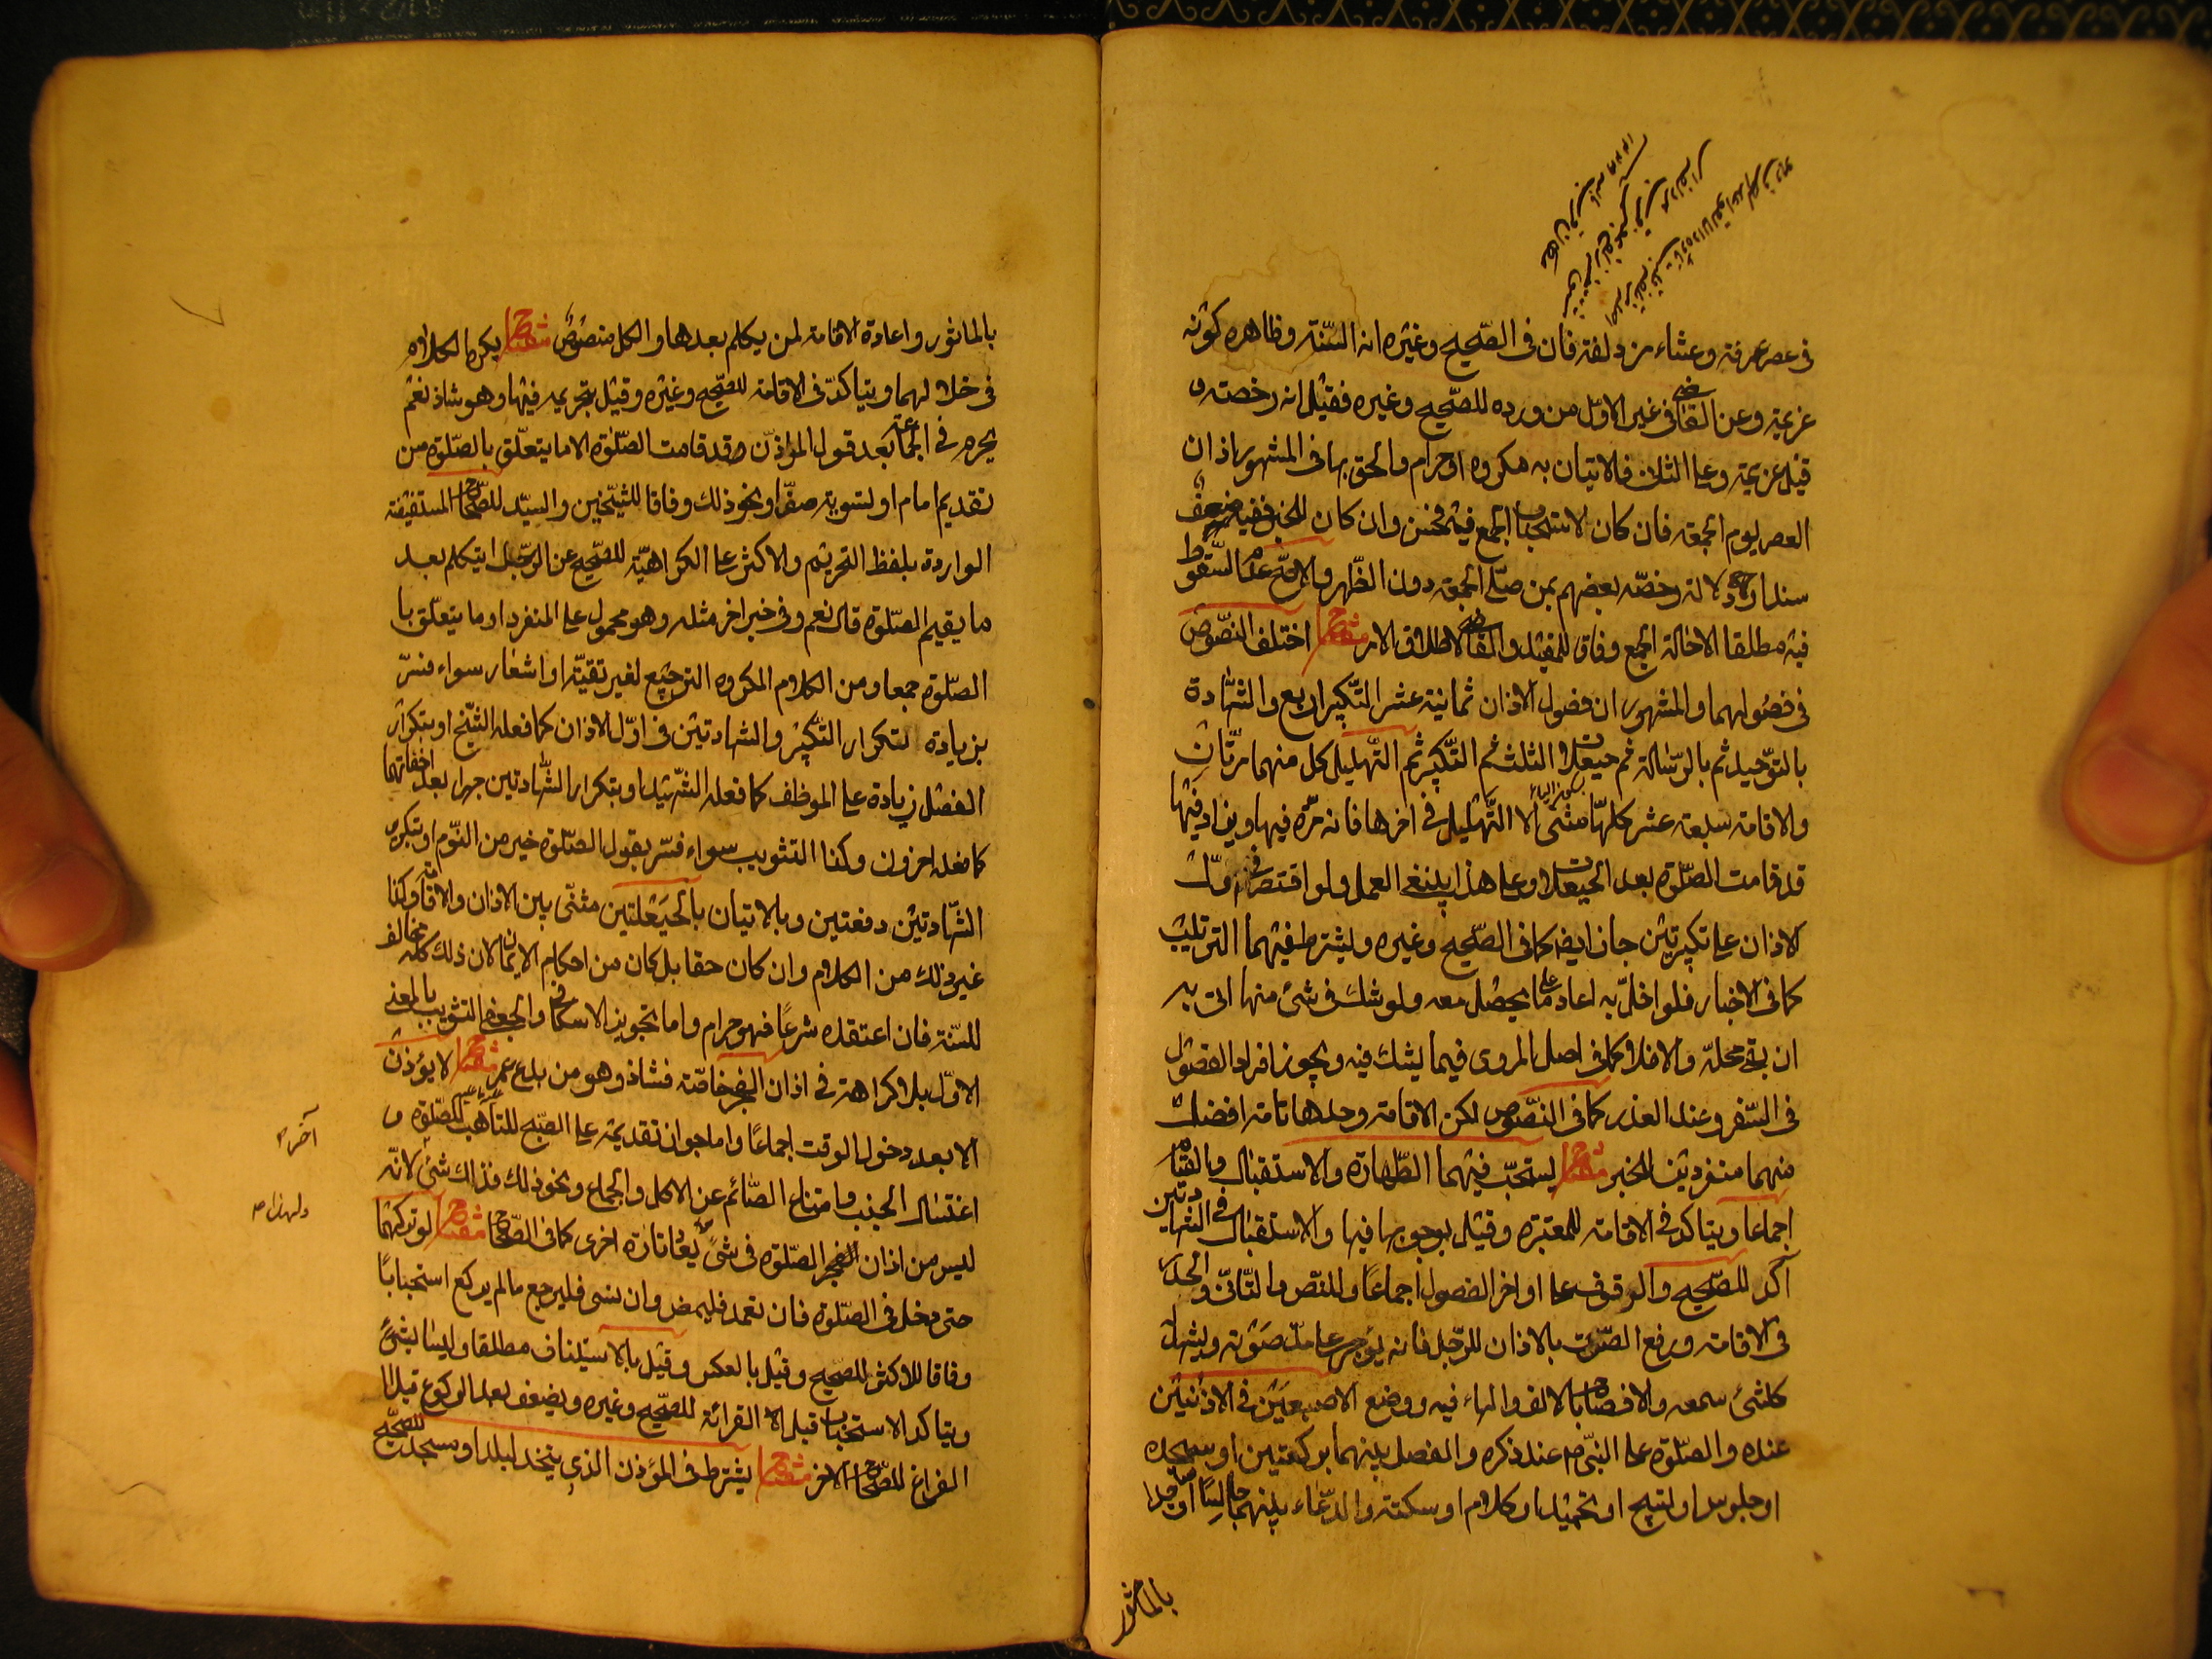 فى عصر عرفة وعشاء مزدلفة فان فى الصّحيح وغيره انه السّنّة وظاهره كونه
عزيمة وعن القاضى فى غير الاوّل من ورده للصّحيح وغيره فقيل انه رخصة و
قيل عزيمة وعلى الثلث فالاتيان به مكروه او حرام والحق بها فى المشهور اذان
العصر يوم الجمعة فان كان لاستحباب الجمع فيه فحسن وان كان للخبر ففيه ضعف
سندا ودلالة وخصّه بعضهم بمن صلّى الجمعة دون الظّهر والاصح عدم السّقوط
فيه مطلقا الا حالة الجمع وفاقا للمفيد والقاضى لاطلاق الامر مفتاح اختلف النّصوص
فى فصولهما والمشهور ان فصول الاذان ثمانية عشر التّكبير اربع والشّهادة
بالتّوحيد ثم بالرّسالة ثم حيعلات الثلث ثم التّكبير ثم التّهليل كل منهما مرّتان
والاقامة سبعة عشر كلّها مثنى الا التّهليل فى اخرها فانه مرّة فيها ويزاد فيها
قد قامت الصّلوة بعد الحيعلات وعلى هذا ينبغى العمل ولو اقتصر فى اوّل
الاذان على تكبيرتين جاز ايضا كما فى الصّحيح وغيره ويشترط فيهما الترتيب
كما فى الاخبار فلو اخلّ به اعاد على ما يحصل معه ولو شك فى شئ منها اتى به
ان بقى محلّه والا فلا كما فى اصل المروى فيما يشك فيه ويجوز افراد الفصول
فى السّفر وعند العذر كما فى النّصوص لكن الاقامة وحدها تامة افضل
منهما منفردتين للخبر مفتاح يستحبّ فيهما الطّهارة والاستقبال والقيام
اجماعا ويتاكد فى الاقامة للمعتبرة وقيل بوجوبها فيها والاستقبال فى الشهادتين
آكد للصّحيح والوقوف على اواخر الفصول اجماعا وللنّص والتّانّى والحدر
فى الاقامة ورفع الصّوت بالاذان للرّجل فانه يؤجر على مدّ صوته ويشهد
كلّ شئ سمعه والافصاح بالالف والهاء فيه ووضع الاصبعين فى الاذنين
عنده والصّلوة على النّبى ص عند ذكره والفصل بينهما بركعتين او سجدة
او جلوس او تسبيح او تحميد او كلام او سكتة والدّعاء بينهما جالسا او ساجدا
بالماثور
بالماثور واعادة الاقامة لمن يكلم بعدها والكل منصوص مفتاح يكره الكلام
فى خلالهما ويتاكدّ فى الاقامة للصّحيح وغيره وقيل بتحريمه فيها وهو شاذ نعم
يحرم فى الجماعة بعد قول المؤذّن قد قامت الصّلوة الا ما يتعلّق بالصّلوة من
تقديم امام او تسوية صفّ او نحو ذلك وفاقا للشيّخين والسيّد للصّحاح المستفيضة
الواردة بلفظ التحريم والاكثر على الكراهيّة للصّحيح عن الرّجل ايتكلم بعد
ما يقيم الصّلوة قال نعم وفى خبر اخر مثله وهو محمول على المنفرد او ما يتعلّق با
الصّلوة جمعا ومن الكلام المكروه الترجيع لغير تقيّة او اشعار سواء فسّر
بزيادة لتكرار التّكبير والشهادتين فى اوّل الاذان كما فعله الشّيخ او بتكرار
الفصل زيادة على الموظف كما فعله الشّهيد او بتكرار الشّهادتين جهرا بعد اخفاتهما
كما فعله اخرون وكذا التثويب سواء فسّر بقول الصّلوة خير من النّوم او بتكرير
الشّهادتين دفعتين وبالاتيان بالحيعلتين مثنّى بين الاذان والاقامة وكذا
غير ذلك من الكلام وان كان حقا بل كان من احكام الايمان لان ذلك كله مخالف
للسّنة فان اعتقده شرعا فهو حرام واما تجويز الاسكافى والجعفى التثويب بالمعنى
الاوّل بلا كراهة فى اذان الفجر خاصّة فشاذ وهو من بدع عمر مفتاح لا يؤذن
الا بعد دخول الوقت اجماعا واما جواز تقديمه على الصّبح للتاهّب للصّلوة و
اغتسال الجنب وامتناع الصّائم عن الاكل والجماع ونحو ذلك فذاك شئ لانّه
ليس من اذان الفجر للصّلوة فى شئ يعاد تارة اخرى كما فى الصّحاح مفتاح لو تركهما
حتى دخل فى الصّلوة فان تعمد فليمض وان نسى فليرجع ما لم يركع استحبابا
وفاقا للاكثر للصّحيح وقيل بالعكس وقيل بالاستيناف مطلقا وليسا بشئ
ويتاكد الاستحباب قبل القرائة للصّحيح وغيره ويضعف بعد الركوع قبل
الفراغ للصّحاح الاخر مفتاح يشترط فى المؤذن الذى يتخذ لبلد او مسجد للصّحيح